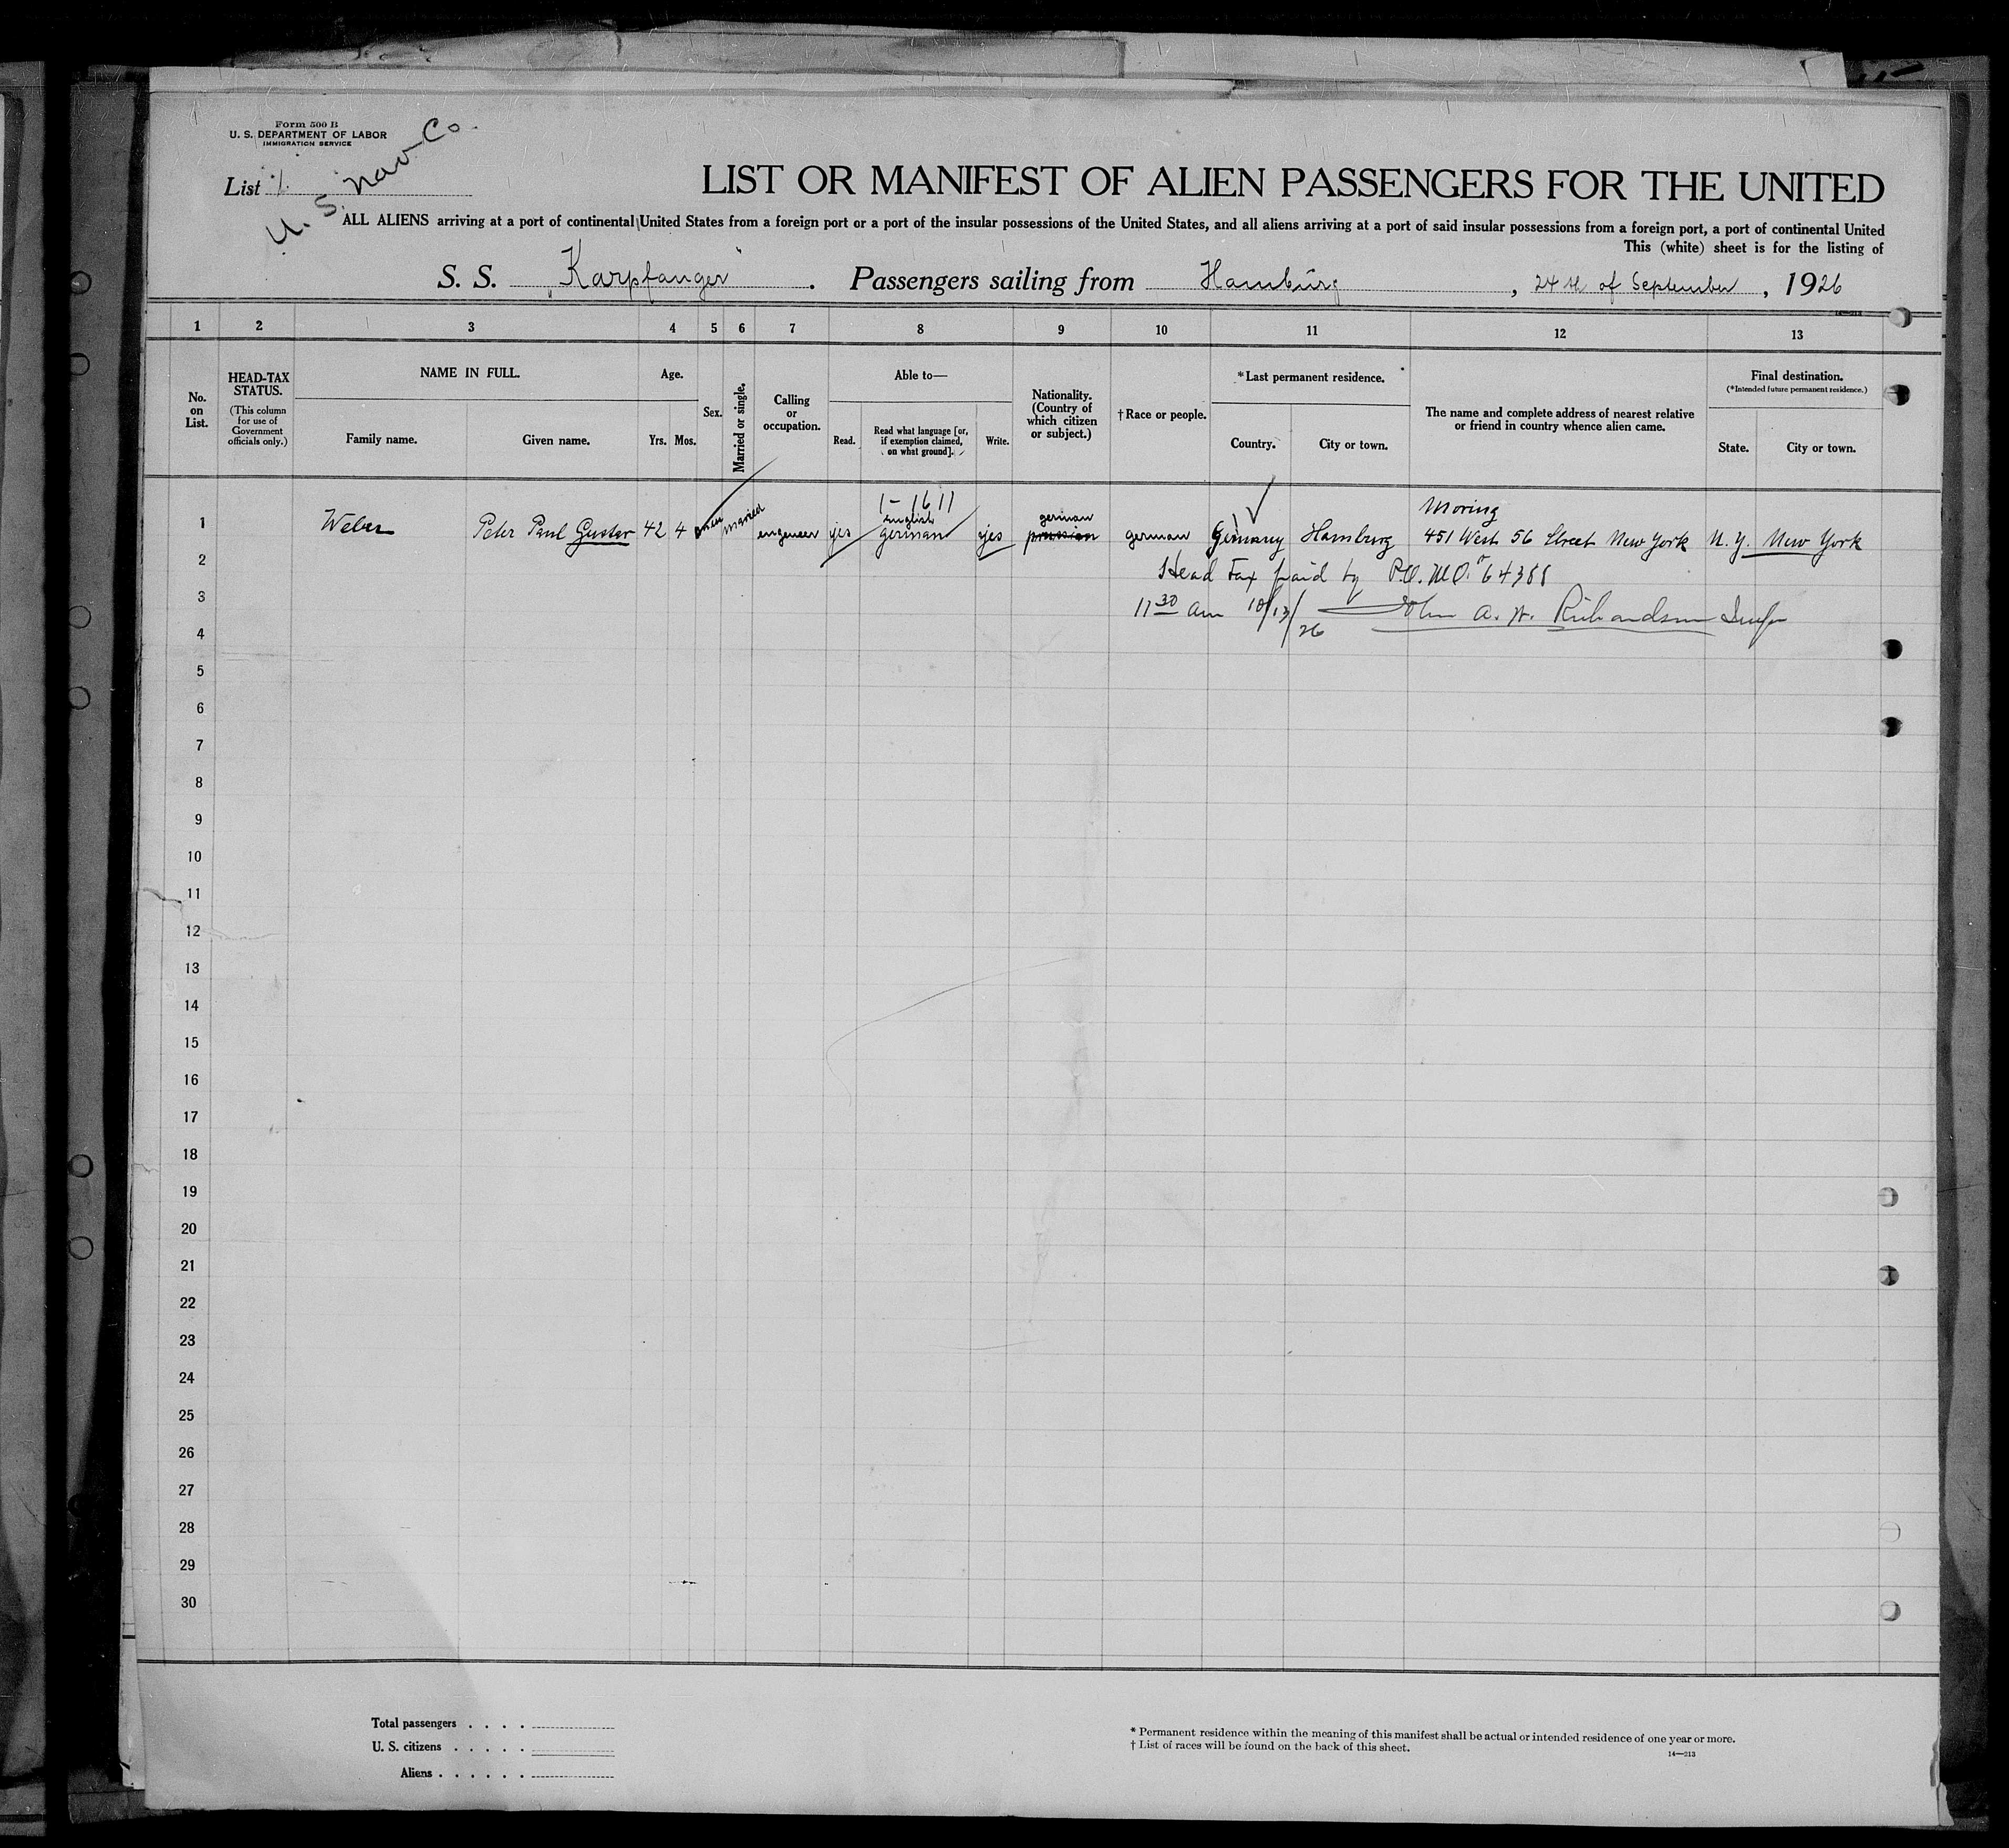 Form 500 B
U. S. DEPARTMENT OF LABOR
IMMIGRATION SERVICE
List 1.
U. S. Nav Co.
LIST OR MANIFEST OF ALIEN PASSENGERS FOR THE UNITED
ALL ALIENS arriving at a port of continental United States from a foreign port or a port of the insular possessions of the United States, and all aliens arriving at a port of said insular possessions from a foreign port, a port of continental United
This (white) sheet is for the listing of
S. S. „Karpfanger“. Passengers sailing from Hamburg, 24th of September, 1926
1 2 3 4 5 6 7 8 9 10 11 12 13
No. on List.
HEAD-TAX STATUS.
(This column for use of Government officials only.)
NAME IN FULL.
Family name.
Given name.
Age.
Yrs. Mos.
Sex.
Married or single.
Calling or occupation.
Able to—
Read.
Read what language [or, if exemption claimed, on what ground].
Write.
Nationality. (Country of which citizen or subject.)
†Race or people.
*Last permanent residence.
Country.
City or town.
The name and complete address of nearest relative or friend in country whence alien came.
Final destination.
(*Intended future permanent residence.)
State.
City or town.
1-1611
english
german
Moring
1 Weber Peter Paul Gustav 42 4 married engeneer yes german yes prussian german Germany Hamburg 451 West 56 Street New York N. Y. New York
2 Head Tax paid by P.O. M.O. 64388
3 11 30 am 10/13/26 John A. W. Richardson Insp
4
5
6
7
8
9
10
11
12
13
14
15
16
17
18
19
20
21
22
23
24
25
26
27
28
29
30
Total passengers . . . .
U. S. citizens . . . . .
Aliens . . . . . .
* Permanent residence within the meaning of this manifest shall be actual or intended residence of one year or more.
† List of races will be found on the back of this sheet.
14—213